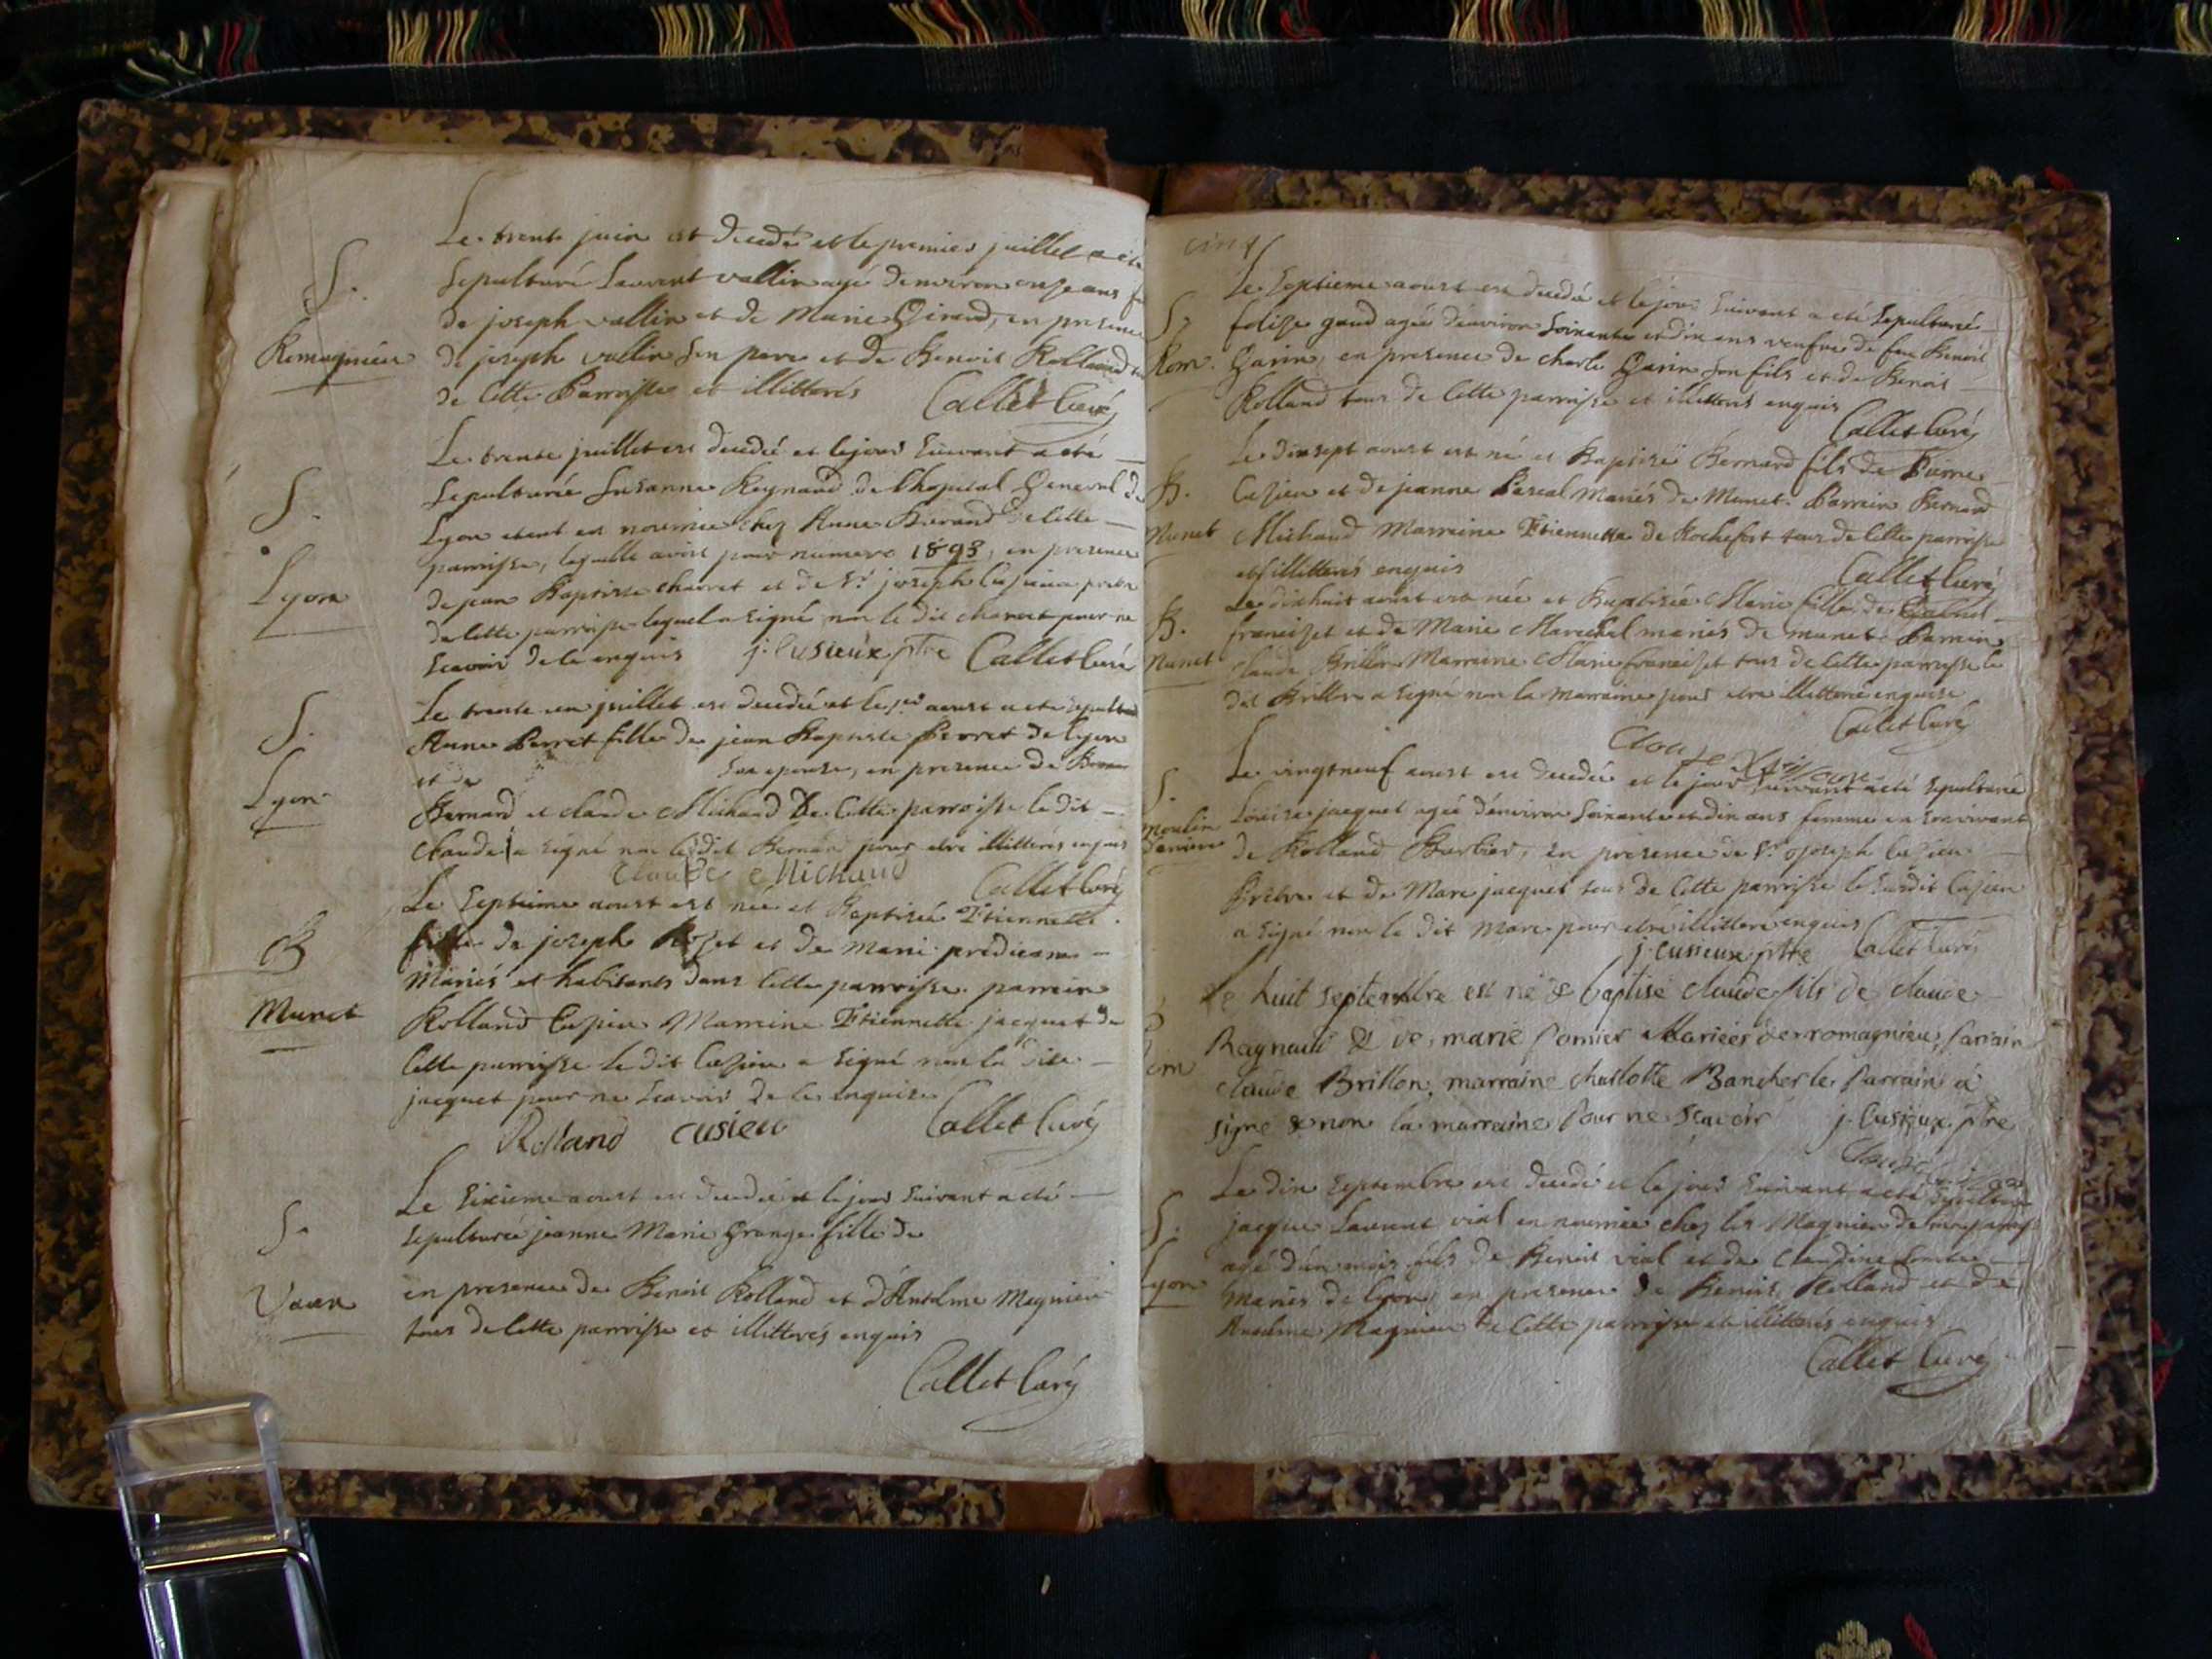 Le trente juin est decedé et le premier juillet a été
S. Sepulturé Laurent vallin agé denviron onze ans
de joseph vallin et de Marie Girard, en presence
Romagnieu de joseph vallin son pere et de Benoit Rolland
de Cette Parroisse et illitterés Callet Curé
Le trente juillet est decedé et le jour Suivant a été
S. Sepulturée Susanne Reynaud de lhopital General de
Lyon etant en nourrice chez Anne Durand de Cette
parroisse, laquelle avoit pour numero 1893, en presence
Lyon de jean Baptiste charret et de Sr joseph Cusieux pretre
de Cette parroisse lequel a Signé non le dit charret pour ne
Scavoir de ce enquis j. Cusieux ptre Callet Curé
S. Le trente un juillet est decedée et le per aoust a été Sepulturée
Anne Perret fille de jean Baptiste Perret de Lyon
et de Son epouse, en presence de
Lyon Bernard et claude Michaud de Cette parroisse le dit
Claude a Signé non le dit Bernard pour etre illitterés enquis
Claude Michaud Callet Curé
Le Septieme aoust est née et Baptisée Etiennette
B fille de joseph Rozet et de Marie predicam
Mariés et habitants dans Cette parroisse. parrein
Munet Rolland Cusieu Marreine Etiennette jacquet de
Cette parroisse le dit Cusieu a Signé non la dite
jacquet pour ne Scavoir de ce enquise
Rolland cusieu Callet Curé
Le Sixieme aoust est decedée et le jour Suivant a été
S. Sepulturée jeanne Marie Grange fille de
Vaux en presence de Benoit Rolland et d'Antelme Magnieu
tous de Cette parroisse et illitterés enquis
Callet Curé
cinq
Le Septieme aoust est decedée et le jour Suivant a été Sepulturée
S. felize gaud agée d'environ Soixante et dix ans veufve de feu Benoit
Rom. Garin, en presence de charle Garin Son fils et de Benoit
Rolland tous de Cette parroisse et illitterés enquis
Callet Curé
Le dixsept aoust est né et Baptisé Bernard fils de Pierre
B. Cusieu et de jeanne Pascal Mariés de Munet. Parrein Bernard
Munet Michaud Marreine Etiennette de Rochefort tous de Cette parroisse
et illitterés enquis Callet Curé
Le dixhuit aoust est née et Baptisée Marie fille de
B. francizet et de Marie Marechal mariés de munet Parrein
Munet Claude Brillon Marreine Marie francizet tous de Cette parroisse le
dit Brillon a Signé non la Marreine pour etre illitterée enquise
Claude Brillon Callet Curé
Le vingtneuf aoust est decedée et le jour Suivant a été Sepulturée
S. Louise jacquet agée d'environ Soixante et dix ans femme en Son vivant
Moulin de Rolland Barbier, en presence de Sr joseph Cusieu
Prêtre et de Marc jacquet tous de Cette parroisse le Susdit Cusieu
a Signé non le dit Marc pour etre illitteré enquis
j. Cusieux ptre Callet Curé
Le huit septembre est né & baptisé claude fils de claude
Raynaud & de, marie Pomier Mariées de romagnieu, Parrain
claude Brillon, marraine charlotte Bancher le Parrain a
signé & non la marraine Pour ne Scavoir j. Cusieux ptre
Claude Brillon
Le dix Septembre est decedé et le jour Suivant a été Sepulturé
S. jacque Laurent vial en nourrice chez les Magnieu de cette parroisse
agé d'un mois fils de Benoit vial et de Claudine
Lyon Mariés de Lyon, en presence de Benoit Rolland et de
Anselme Magnieu de Cette parroisse et illitterés enquis
Callet Curé